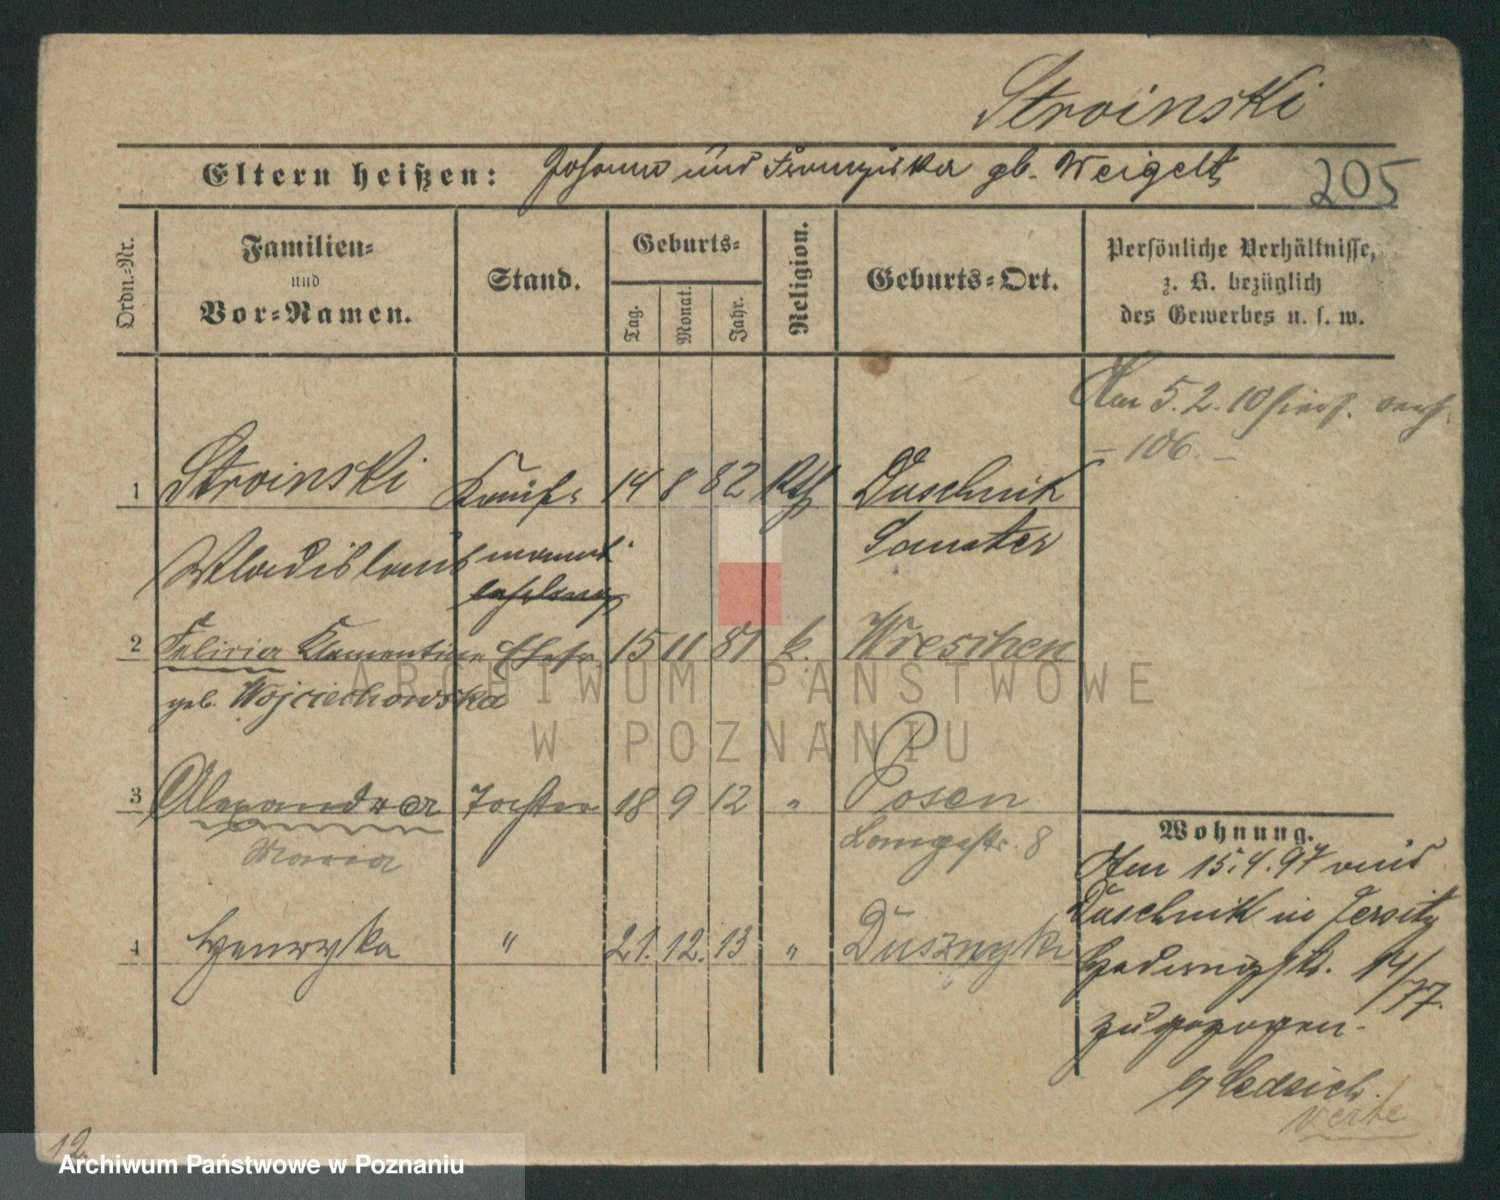 Stroinski
Eltern heißen: Johann und Franziska gb. Weigelt
205
Ordn.-Nr.
Familien-
und
Vor-Namen.
Stand.
Geburts-
Tag.
Monat.
Jahr.
Religion.
Geburts-Ort.
Persönliche Verhältnisse,
z. B. bezüglich
des Gewerbes u. s. w.
Am 5.2.10
– 106. –
1 Stroinski 14 8 82 Kth Duschnik
Wladislaus Samter
2 Felicia Klementine Ehefr 15 11 81 k. Wreschen
geb. Wojciechowska
3 Alexandra Tochter 18 9 12 " Posen
Maria Langestr. 8
4 Henryka " 21. 12. 13 " Duszniki
Wohnung.
Am 15.4.97 von
Duschnik in Jersitz
Hedwigstr. 14/77.
zugezogen.
verte
12
ARCHIWUM PAŃSTWOWE
W POZNANIU
Archiwum Państwowe w Poznaniu